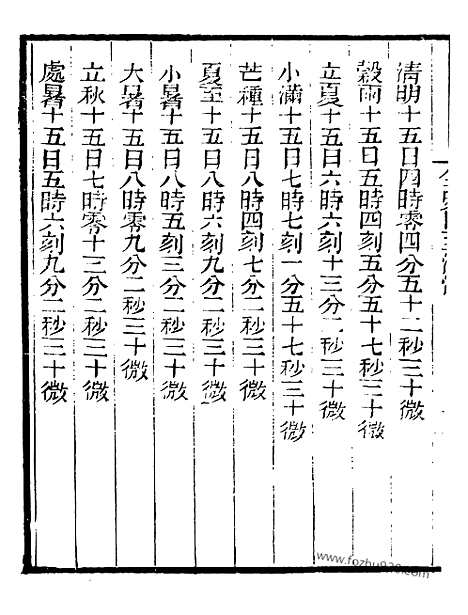 清明十五日四時零四分五十二秒三十微
穀雨十五日五時四刻五分五十七秒三十微
立夏十五日六時六刻十三分二秒三十微
小滿十五日七時七刻一分五十七秒三十微
芒種十五日八時四刻七分二秒三十微
夏至十五日八時六刻九分二秒三十微
小暑十五日八時五刻三分二秒三十微
大暑十五日八時零九分二秒三十微
立秋十五日七時零十三分二秒三十微
處暑十五日五時六刻九分二秒三十微